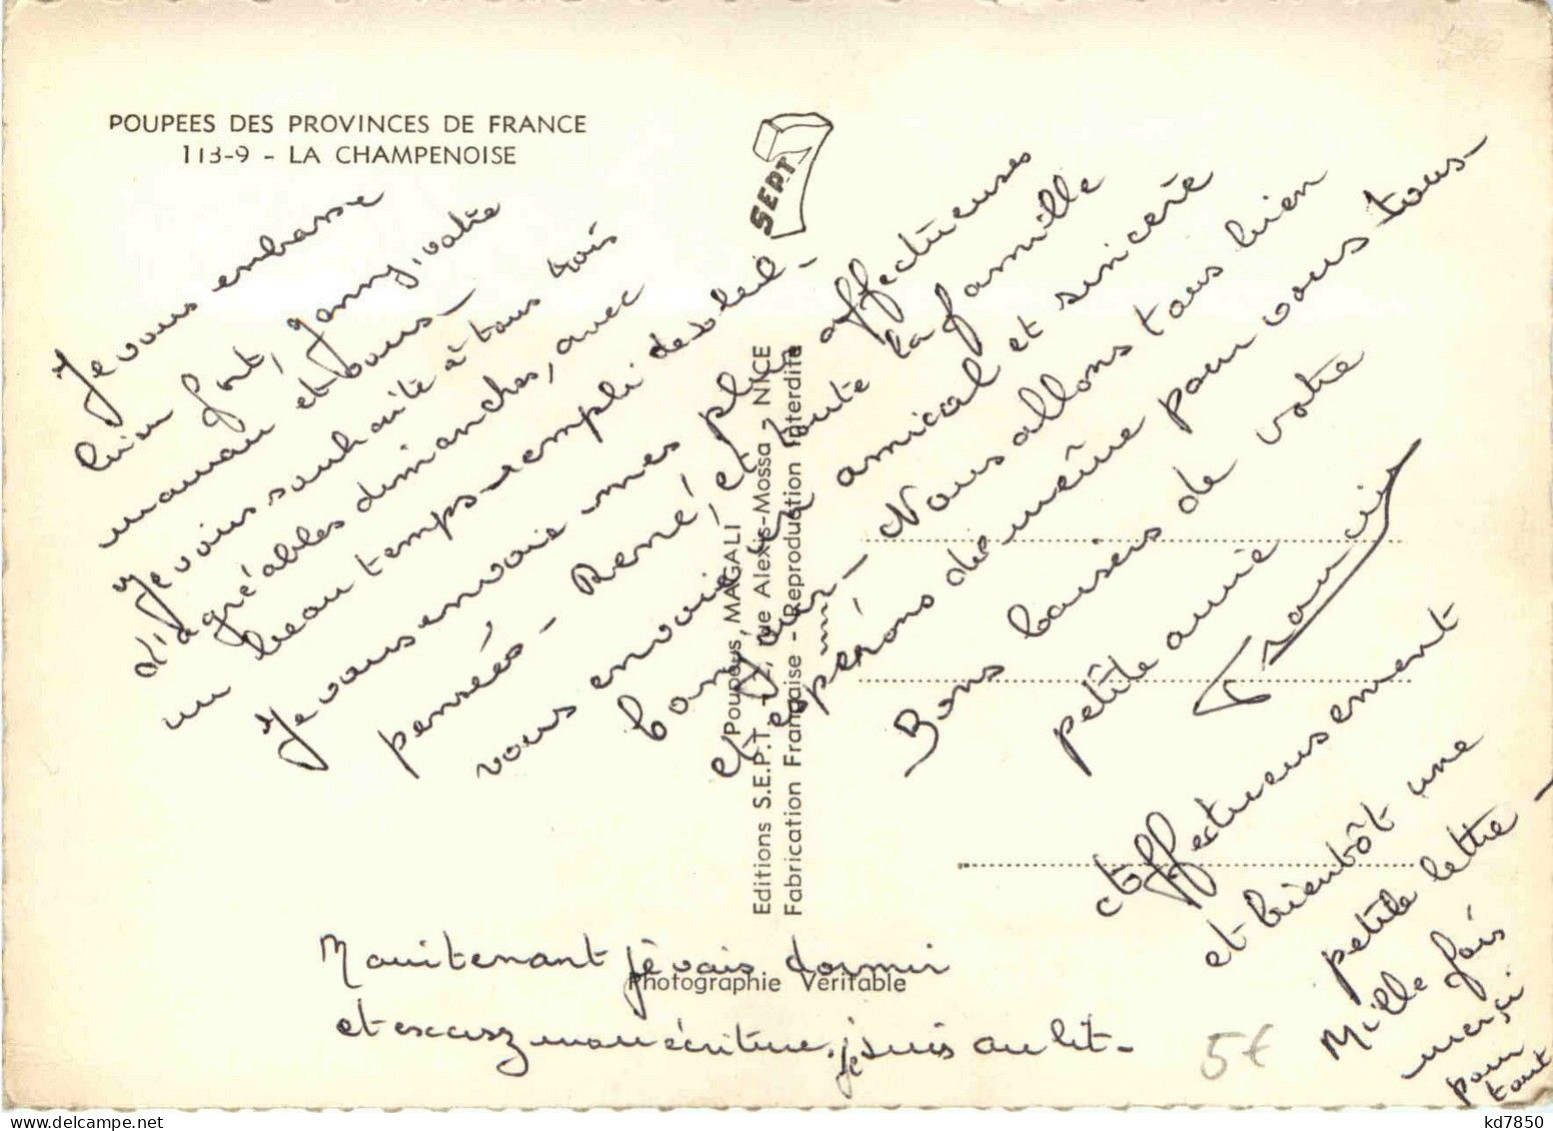 POUPEES DES PROVINCES DE FRANCE
113-9 - LA CHAMPENOISE
SEPT
Je vous embrasse
bien fort, Janny, votre
maman et vous -
Je vous souhaite à tous trois
d'agréables dimanches, avec
un beau temps rempli de soleil -
Je vous envoie mes plus affectueuses
pensées - René, et toute la famille
vous envoie amical et sincère
- Nous allons tous bien
espérons de même pour vous tous -
Bons baisers de votre
petite amie
Francis
affectueusement
et bientôt une
petite lettre -
Mille fois
merci
pour
tout
Maintenant je vais dormir
et excusez mon écriture, je suis au lit -
Poupées MAGALI
Editions S.E.P.T. rue Alexis-Mossa - NICE
Fabrication Française - Reproduction Interdite
Photographie Véritable
5€
kd7850